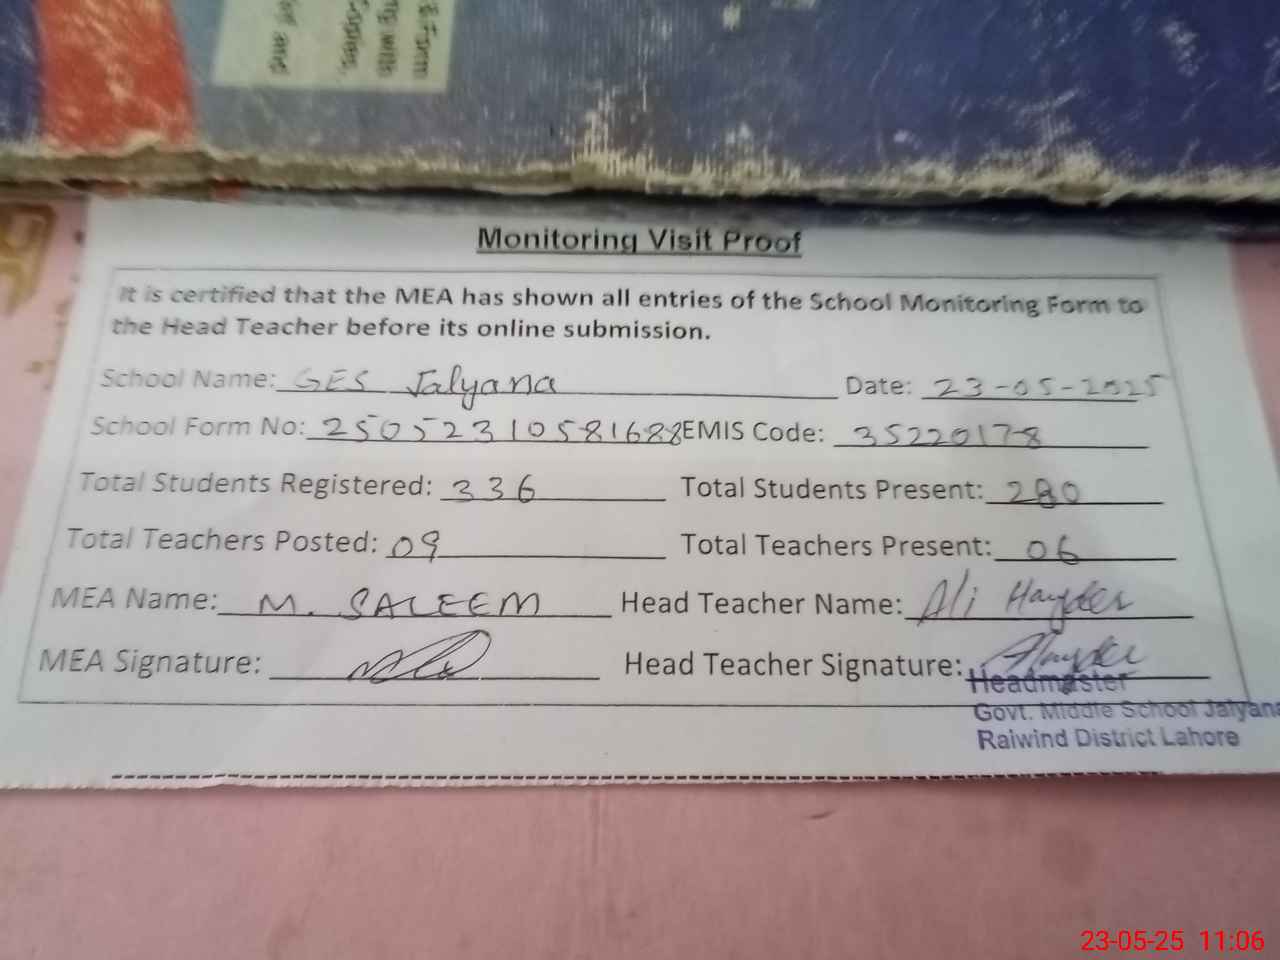 & Form
ng with
Copies,
and
Monitoring Visit Proof
It is certified that the MEA has shown all entries of the School Monitoring Form to
the Head Teacher before its online submission.
School Name: GES Jalyana Date: 23-05-2025
School Form No: 25052310581688 EMIS Code: 35220178
Total Students Registered: 336 Total Students Present: 280
Total Teachers Posted: 09 Total Teachers Present: 06
MEA Name: M. SALEEM Head Teacher Name: Ali Hayder
MEA Signature: Head Teacher Signature: Hayder
Headmaster
Govt. Middle School Jalyana
Raiwind District Lahore
23-05-25 11:06